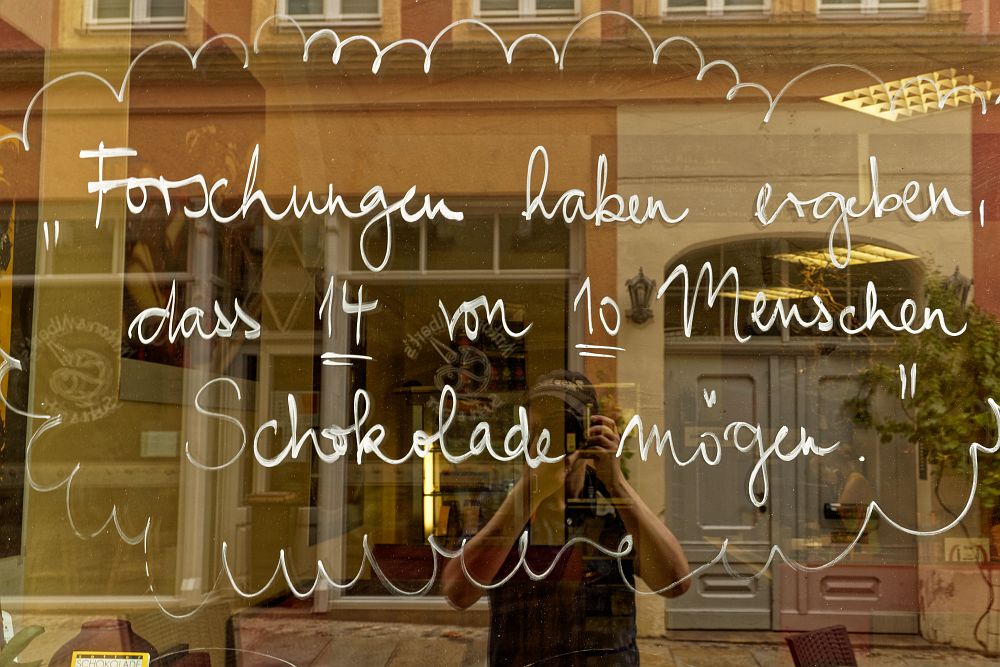 "Forschungen haben ergeben,
dass 14 von 10 Menschen
Schokolade mögen."
SCHOKOLADE